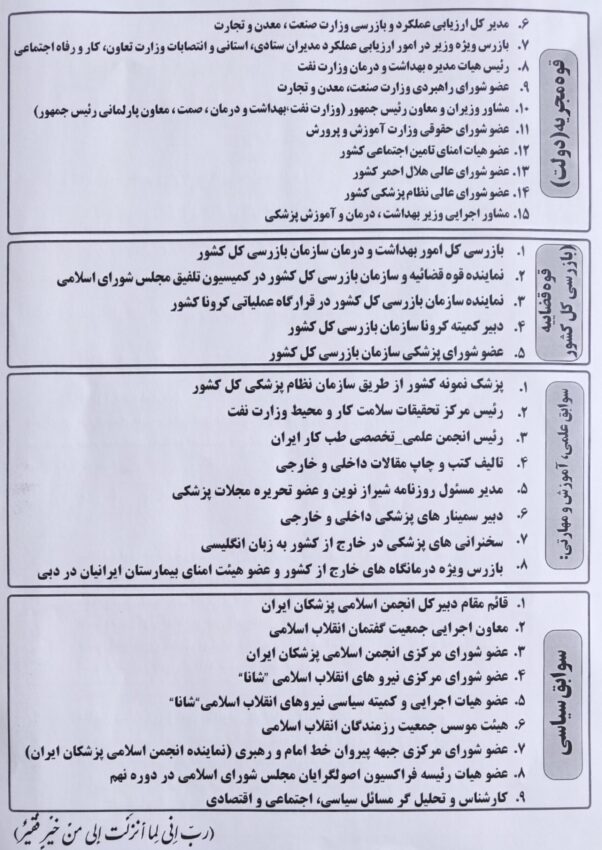 قوه مجریه (دولت)
۶. مدیر کل ارزیابی عملکرد و بازرسی وزارت صنعت، معدن و تجارت
۷. بازرس ویژه وزیر در امور ارزیابی عملکرد مدیران ستادی، استانی و انتصابات وزارت تعاون، کار و رفاه اجتماعی
۸. رئیس هیات مدیره بهداشت و درمان وزارت نفت
۹. عضو شورای راهبردی وزارت صنعت، معدن و تجارت
۱۰. مشاور وزیران و معاون رئیس جمهور (وزارت نفت،بهداشت و درمان ، صمت ، معاون پارلمانی رئیس جمهور)
۱۱. عضو شورای حقوقی وزارت آموزش و پرورش
۱۲. عضو هیات امنای تامین اجتماعی کشور
۱۳. عضو شورای عالی هلال احمر کشور
۱۴. عضو شورای عالی نظام پزشکی کشور
۱۵. مشاور اجرایی وزیر بهداشت ، درمان و آموزش پزشکی
قوه قضاییه
(بازرسی کل کشور)
۱. بازرسی کل امور بهداشت و درمان سازمان بازرسی کل کشور
۲. نماینده قوه قضائیه و سازمان بازرسی کل کشور در کمیسیون تلفیق مجلس شورای اسلامی
۳. نماینده سازمان بازرسی کل کشور در قرارگاه عملیاتی کرونا کشور
۴. دبیر کمیته کرونا سازمان بازرسی کل کشور
۵. عضو شورای پزشکی سازمان بازرسی کل کشور
سوابق علمی، آموزش و مهارتی:
۱. پزشک نمونه کشور از طریق سازمان نظام پزشکی کل کشور
۲. رئیس مرکز تحقیقات سلامت کار و محیط وزارت نفت
۳. رئیس انجمن علمی_تخصصی طب کار ایران
۴. تالیف کتب و چاپ مقالات داخلی و خارجی
۵. مدیر مسئول روزنامه شیراز نوین و عضو تحریره مجلات پزشکی
۶. دبیر سمینار های پزشکی داخلی و خارجی
۷. سخنرانی های پزشکی در خارج از کشور به زبان انگلیسی
۸. بازرس ویژه درمانگاه های خارج از کشور و عضو هیئت امنای بیمارستان ایرانیان در دبی
سوابق سیاسی
۱. قائم مقام دبیرکل انجمن اسلامی پزشکان ایران
۲. معاون اجرایی جمعیت گفتمان انقلاب اسلامی
۳. عضو شورای مرکزی انجمن اسلامی پزشکان ایران
۴. عضو شورای مرکزی نیرو های انقلاب اسلامی "شانا"
۵. عضو هیات اجرایی و کمیته سیاسی نیروهای انقلاب اسلامی"شانا"
۶. هیئت موسس جمعیت رزمندگان انقلاب اسلامی
۷. عضو شورای مرکزی جبهه پیروان خط امام و رهبری (نماینده انجمن اسلامی پزشکان ایران)
۸. عضو هیات رئیسه فراکسیون اصولگرایان مجلس شورای اسلامی در دوره نهم
۹. کارشناس و تحلیل گر مسائل سیاسی، اجتماعی و اقتصادی
(رَبِّ إِنِّی لِما أَنْزَلْتَ إِلَی مِنْ خَیْرٍ فَقیرٌ)